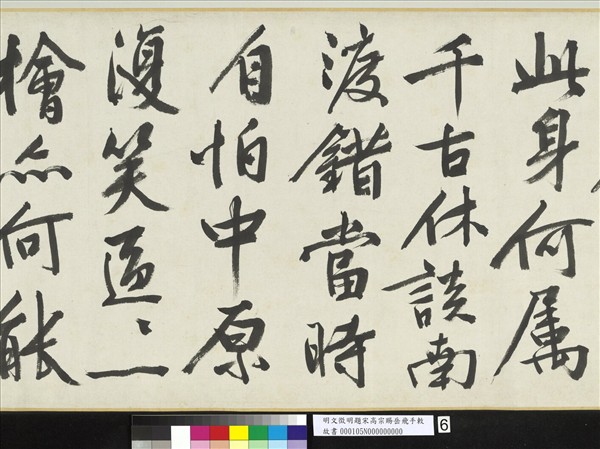 此身何属
千古休談南
渡錯當時
自怕中原
復笑區〻一
檜亦何能
明文徵明題宋高宗賜岳飛手敕
故書 000105N000000000
6